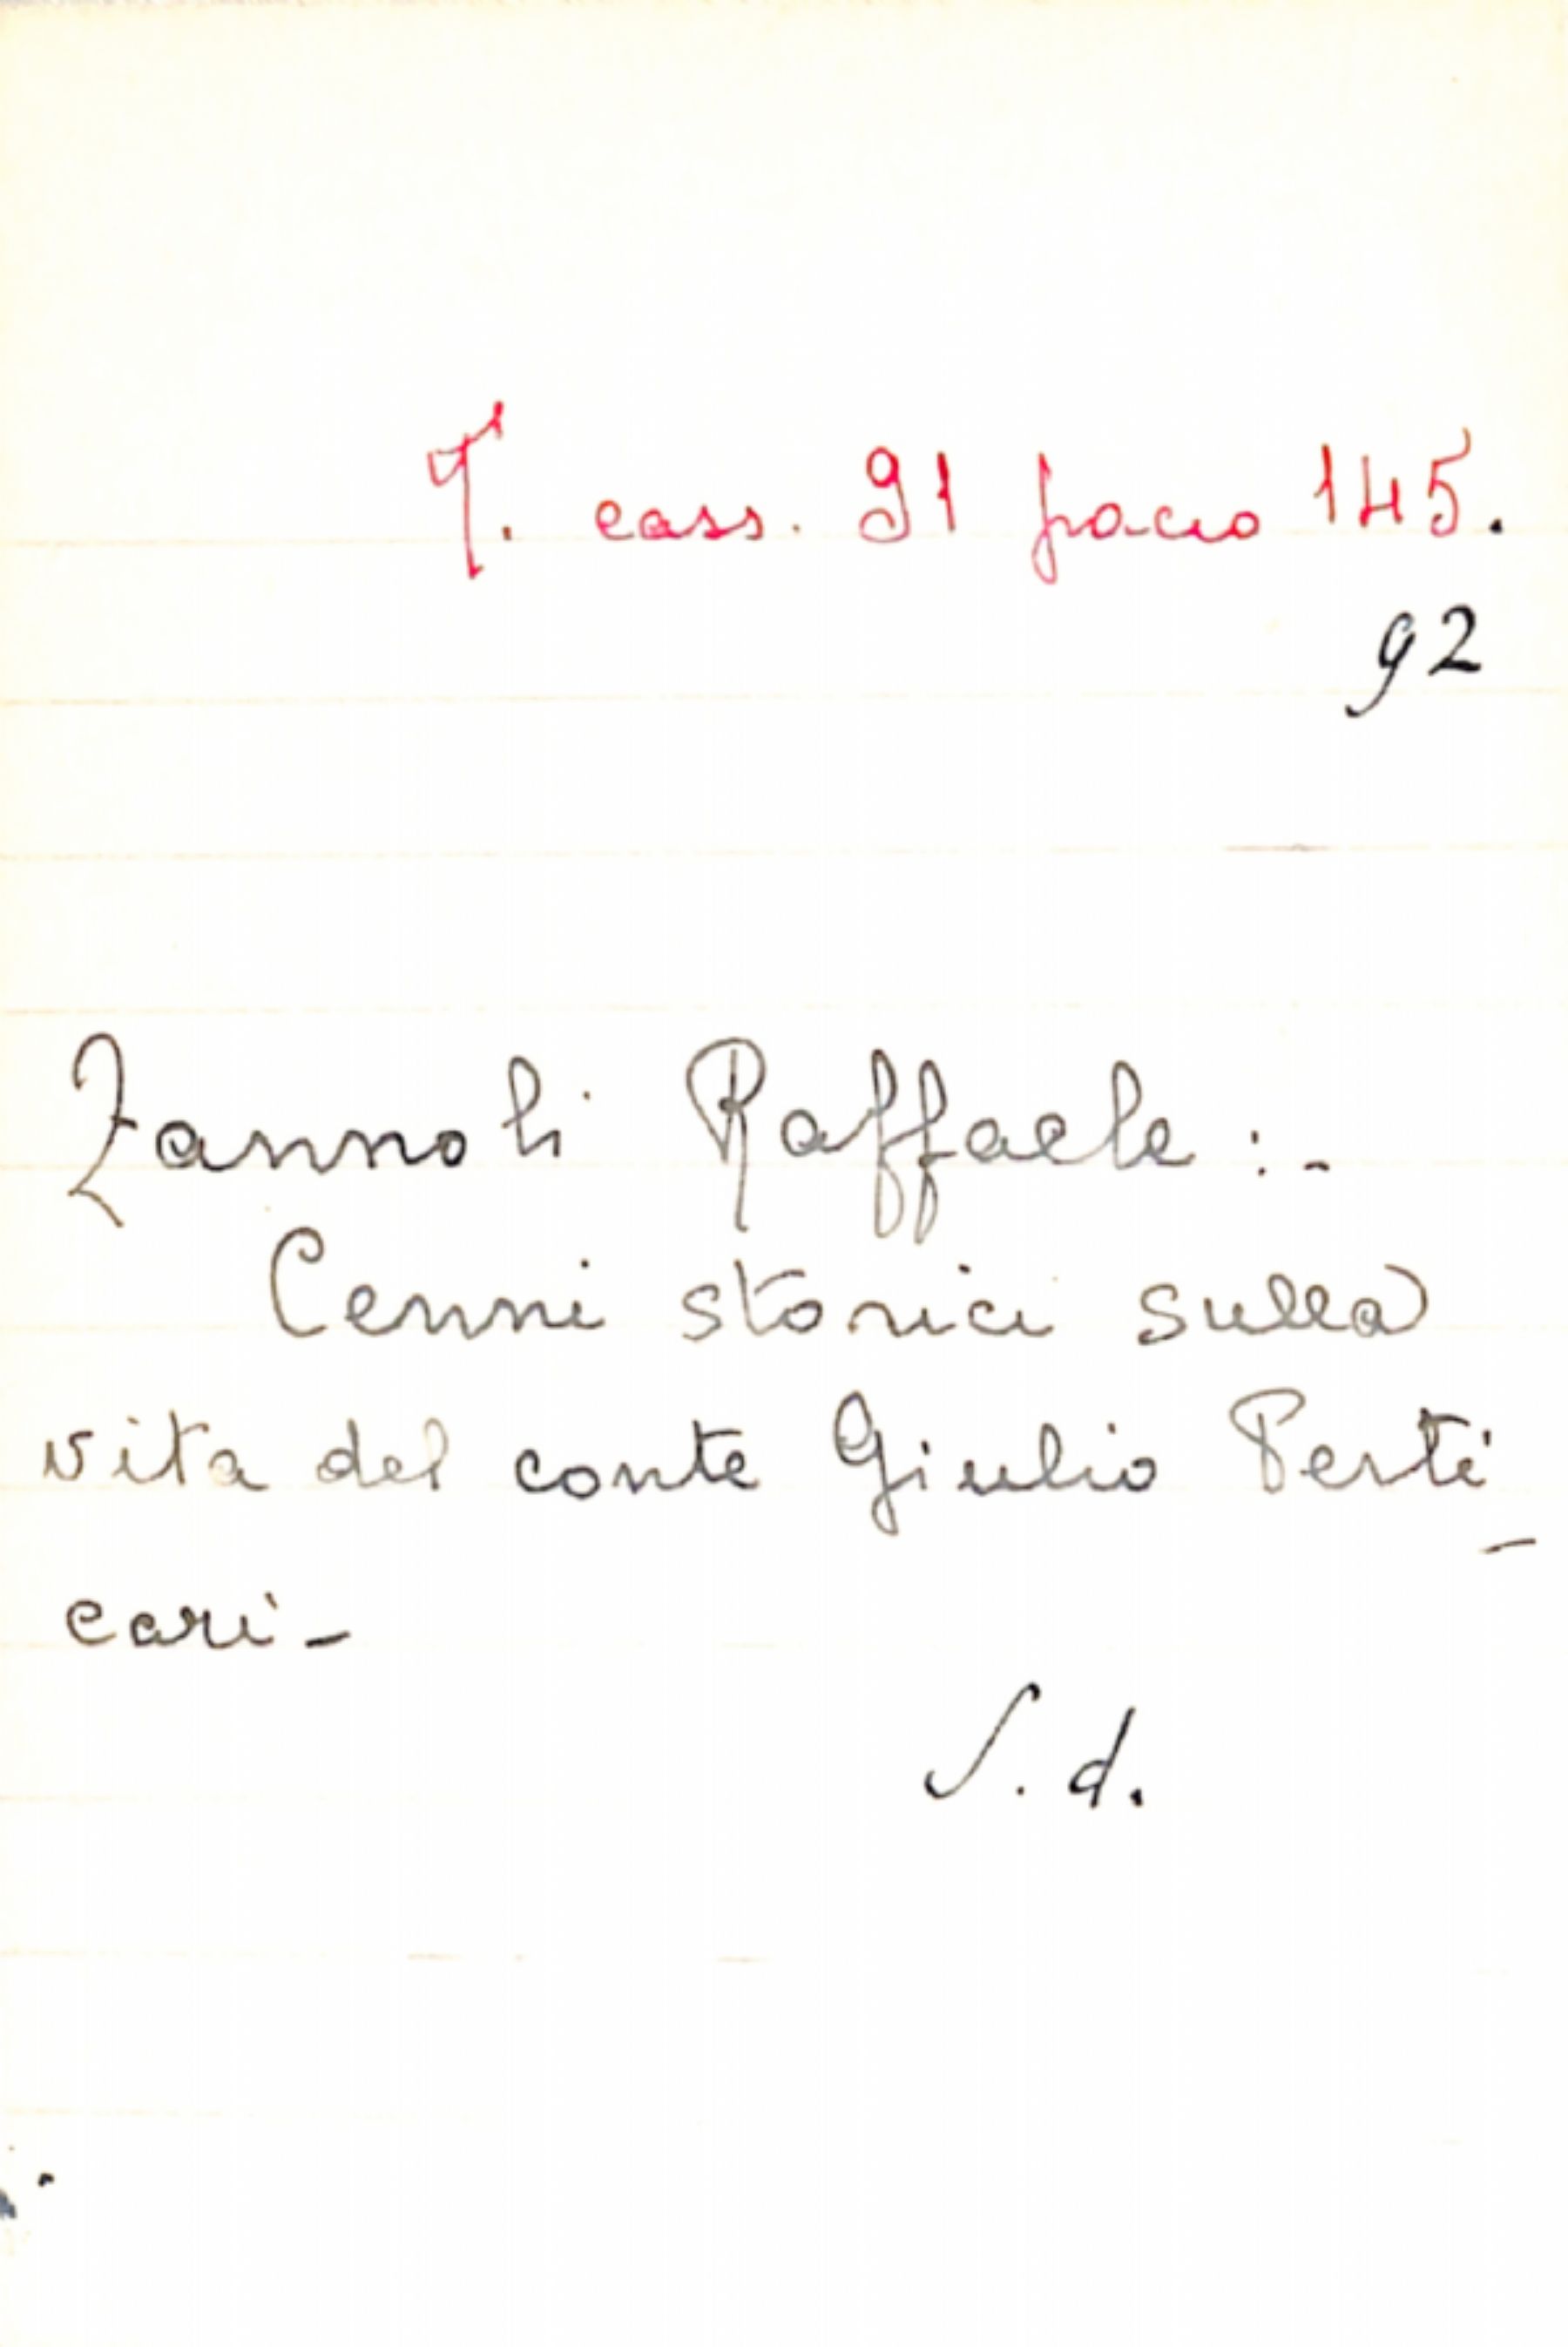 T. cass. 91 facio 145.
92
Zannoli Raffaele :-
Cenni storici sulla
vita del conte Giulio Perti-
cari -
S. d.